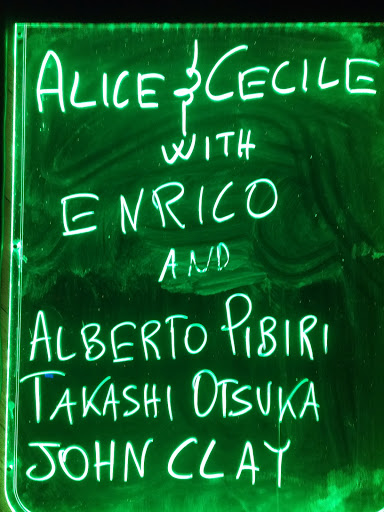 ALICE & CECILE
WITH
ENRICO
AND
ALBERTO PIBIRI
TAKASHI OTSUKA
JOHN CLAY